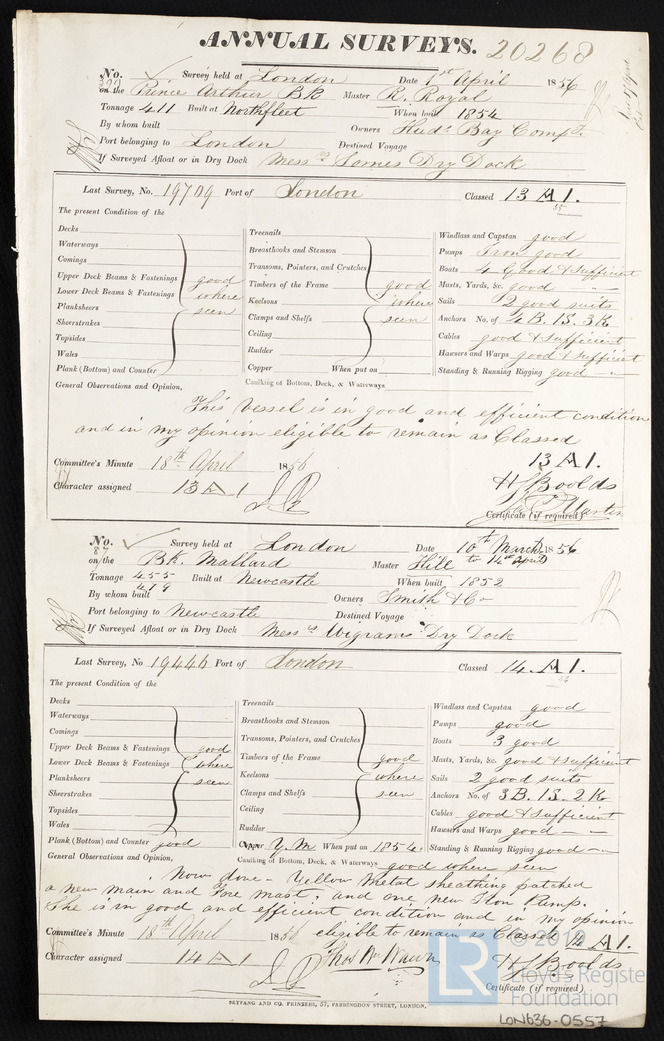 ANNUAL SURVEYS. 20268
No. Survey held at London Date 1st April 1856
on the Prince Arthur Bk Master R. Royal
Tonnage 411 Built at Northfleet When built 1854
By whom built Owners Huds Bay Comp.
Port belonging to London Destined Voyage
If Surveyed Afloat or in Dry Dock Messrs Somes Dry Dock
Last Survey, No. 19709 Port of London Classed 13 A 1.
The present Condition of the
Decks
Waterways
Comings
Upper Deck Beams & Fastenings good
Lower Deck Beams & Fastenings where
Planksheers seen
Sheerstrakes
Topsides
Wales
Plank (Bottom) and Counter
Treenails
Breasthooks and Stemson
Transoms, Pointers, and Crutches
Timbers of the Frame good
Keelsons where
Clamps and Shelfs seen
Ceiling
Rudder
Copper When put on
Caulking of Bottom, Deck, & Waterways
Windlass and Capstan good
Pumps Iron good
Boats 4 Good & sufficient
Masts, Yards, &c. good
Sails 2 good suits
Anchors No. of 4 B. 1S. 3K
Cables good & sufficient
Hawsers and Warps good & sufficient
Standing & Running Rigging good
General Observations and Opinion,
This vessel is in good and efficient condition
and in my opinion eligible to remain as Classed
13 A 1.
Committee's Minute 18th April 1856
Character assigned 13 A 1
H J Boolds
Martin
Certificate (if required)
No. Survey held at London Date 10th March 1856
on the Bk. Mallard Master Hill to 14th April
Tonnage 455 Built at Newcastle When built 1852
419
By whom built Owners Smith & Co
Port belonging to Newcastle Destined Voyage
If Surveyed Afloat or in Dry Dock Messrs Wigrams Dry Dock
Last Survey, No 19446 Port of London Classed 14. A 1.
The present Condition of the
Decks
Waterways
Comings
Upper Deck Beams & Fastenings good
Lower Deck Beams & Fastenings where
Planksheers seen
Sheerstrakes
Topsides
Wales
Plank (Bottom) and Counter good
Treenails
Breasthooks and Stemson
Transoms, Pointers, and Crutches
Timbers of the Frame good
Keelsons where
Clamps and Shelfs seen
Ceiling
Rudder
Copper Y. M When put on 1854
Caulking of Bottom, Deck, & Waterways good where seen
Windlass and Capstan good
Pumps good
Boats 3 good
Masts, Yards, &c. good & sufficient
Sails 2 good suits
Anchors No. of 3B. 1S. 2K
Cables good & sufficient
Hawsers and Warps good
Standing & Running Rigging good
General Observations and Opinion,
Now done - Yellow Metal sheathing patched
a new main and Fore mast; and one new Iron Pump.
She is in good and efficient condition and in my opinion
eligible to remain as Classed 14 A 1.
Committee's Minute 18th April 1856
Character assigned 14 A 1
H J Boolds
Certificate (if required)
SEYFANG AND CO. PRINTERS, 57, FARRINGDON STREET, LONDON.
LR © 2019
Lloyd's Register
Foundation
LON636-0557